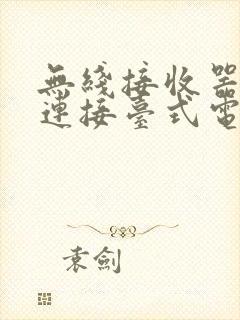 無綫接收器
連接臺式電
袁劍